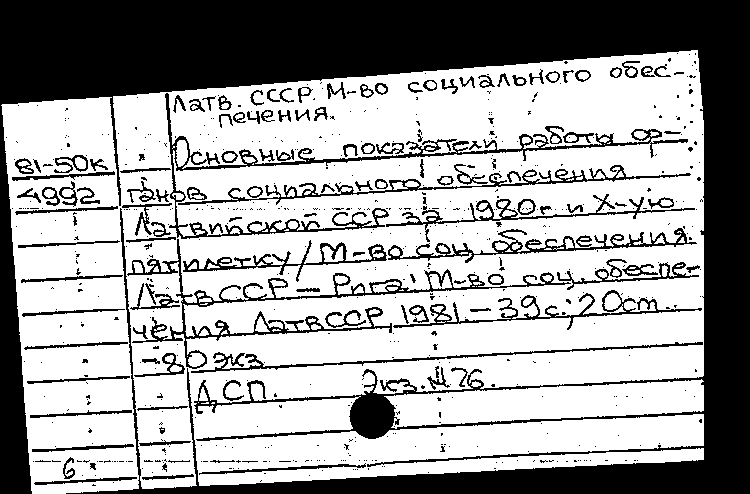 Латв. СССР. М-во социального обес-
печения.
81-50к Основные показатели работы ор-
4992 ганов социального обеспечения
Латвийской ССР за 1980г и X-ую
пятилетку / М-во соц. обеспечения
ЛатвССР — Рига: М-во соц. обеспе-
чения ЛатвССР, 1981. – 39 с.; 20 см.
-80 экз
ДСП. Экз. № 76.
6